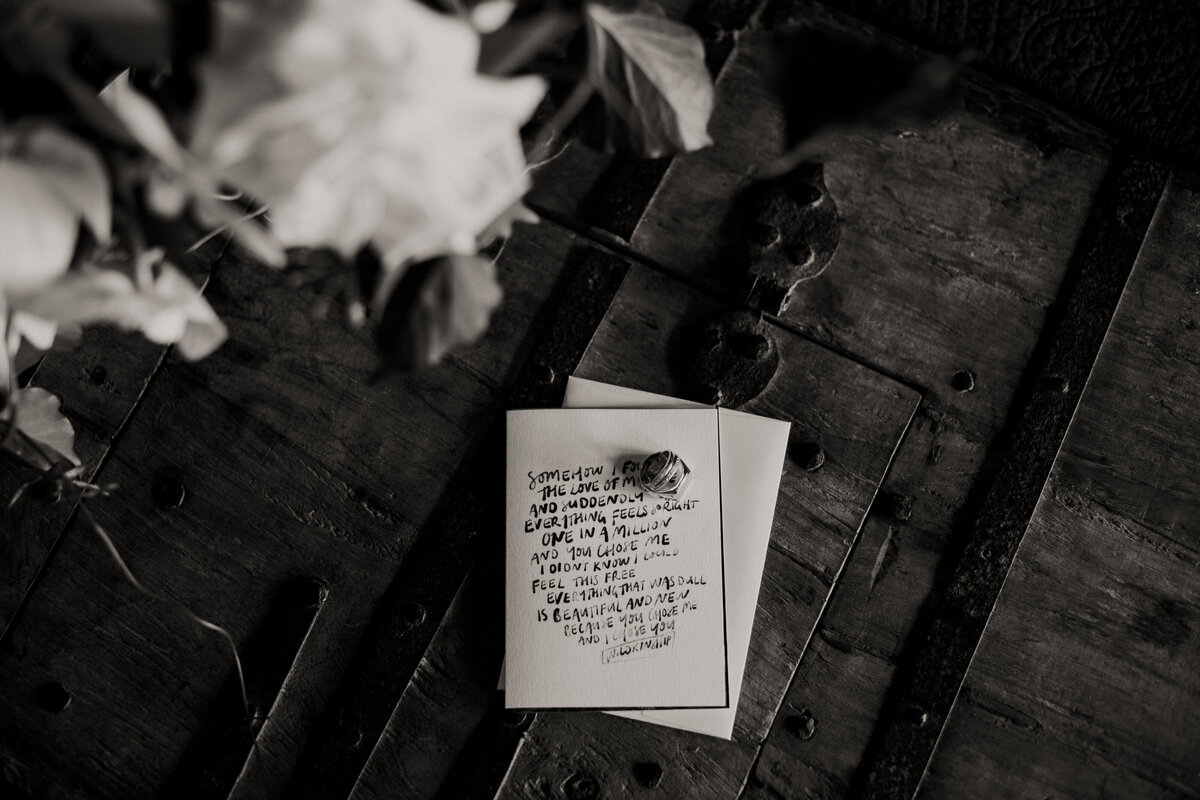 SOMEHOW I FO
THE LOVE OF M
AND SUDDENDLY
EVERYTHING FEELS RIGHT
ONE IN A MILLION
AND YOU CHOSE ME
I DIDNT KNOW I COULD
FEEL THIS FREE
EVERYTHING THAT WAS DULL
IS BEAUTIFUL AND NEW
BECAUSE YOU CHOSE ME
AND I CHOSE YOU